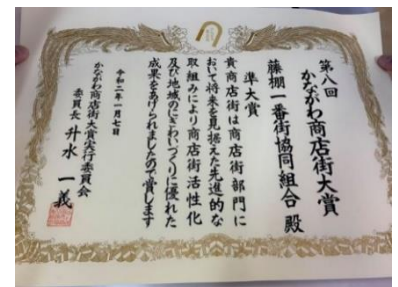 第八回
かながわ商店街大賞
藤棚一番街協同組合 殿
準大賞
貴商店街は商店街部門に
おいて将来を見据えた先進的な
取組みにより商店街活性化
及び地域のにぎわいづくりに優れた
成果をあげられましたので賞します
令和二年一月七日
かながわ商店街大賞実行委員会
委員長 升水 一義